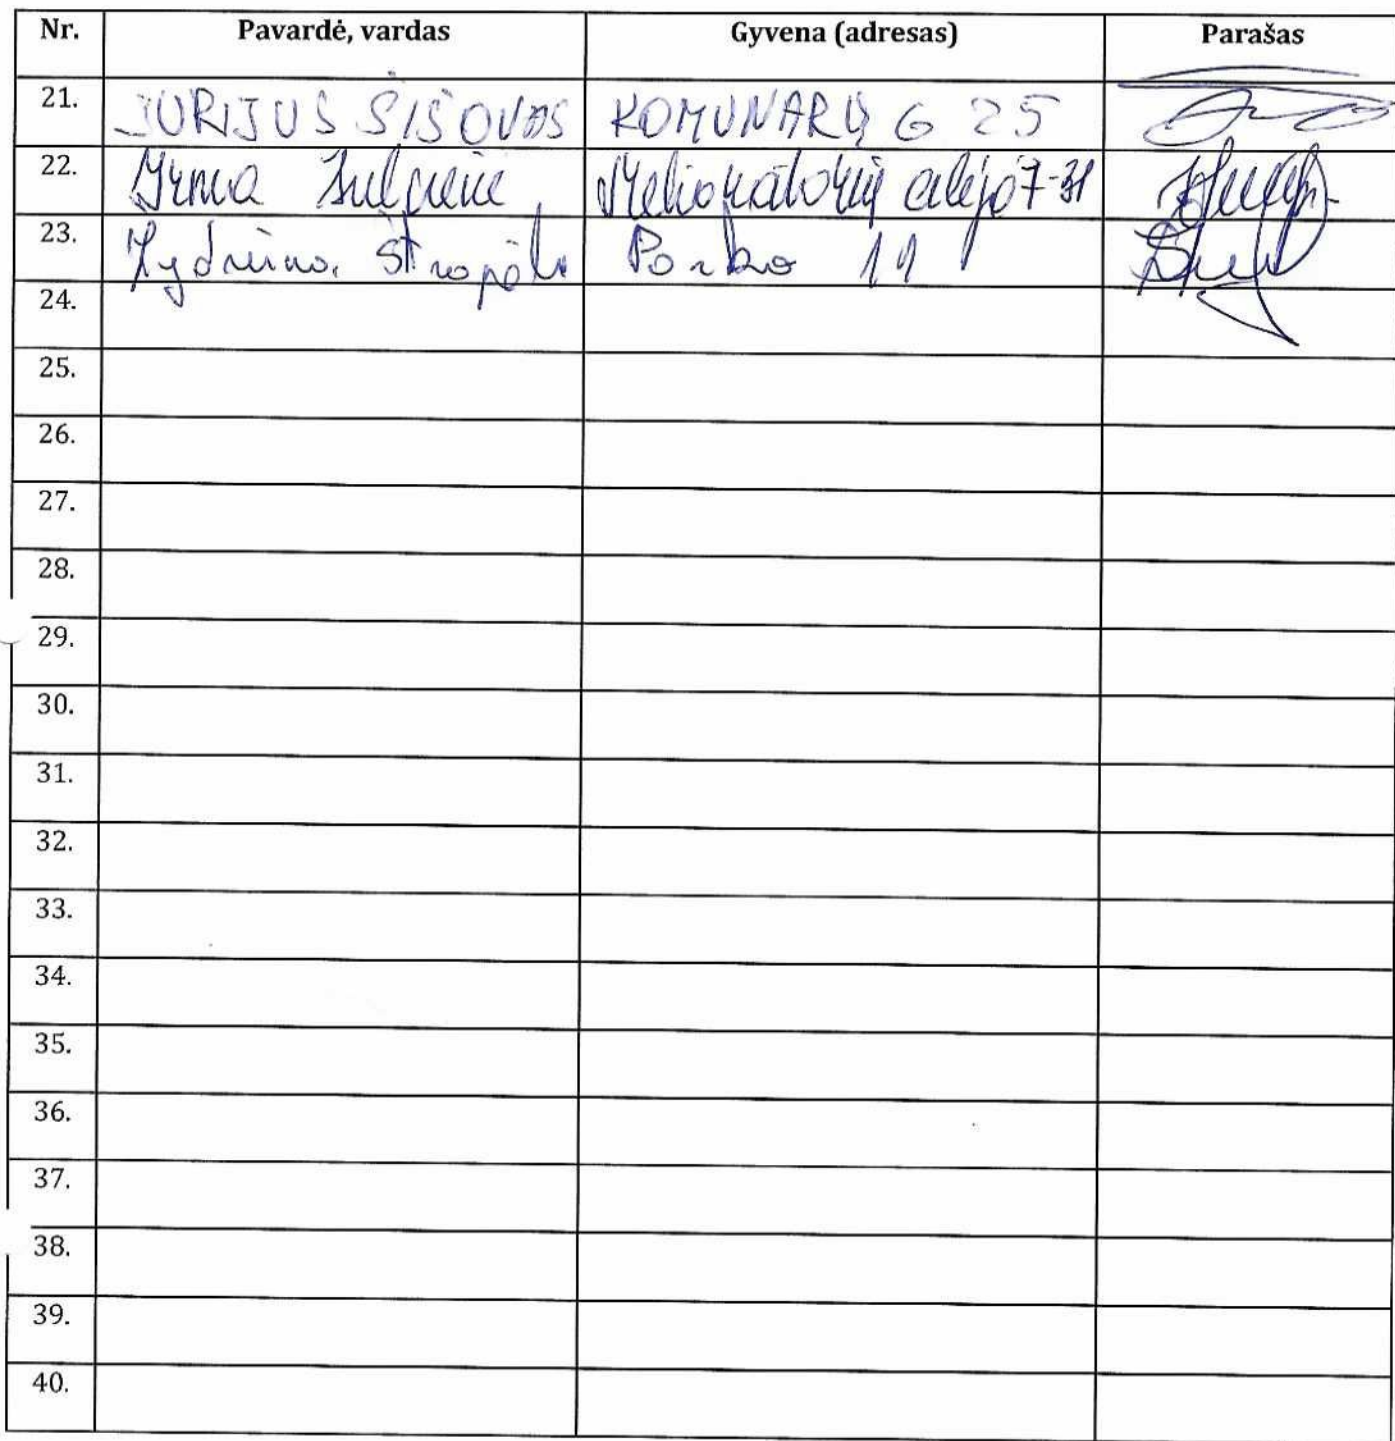 Nr. Pavardė, vardas Gyvena (adresas) Parašas
21. JURIJUS ŠIŠOVAS KOMUNARŲ G 25
22. Irma Melioratorių alėja 7-31
23. 11
24.
25.
26.
27.
28.
29.
30.
31.
32.
33.
34.
35.
36.
37.
38.
39.
40.